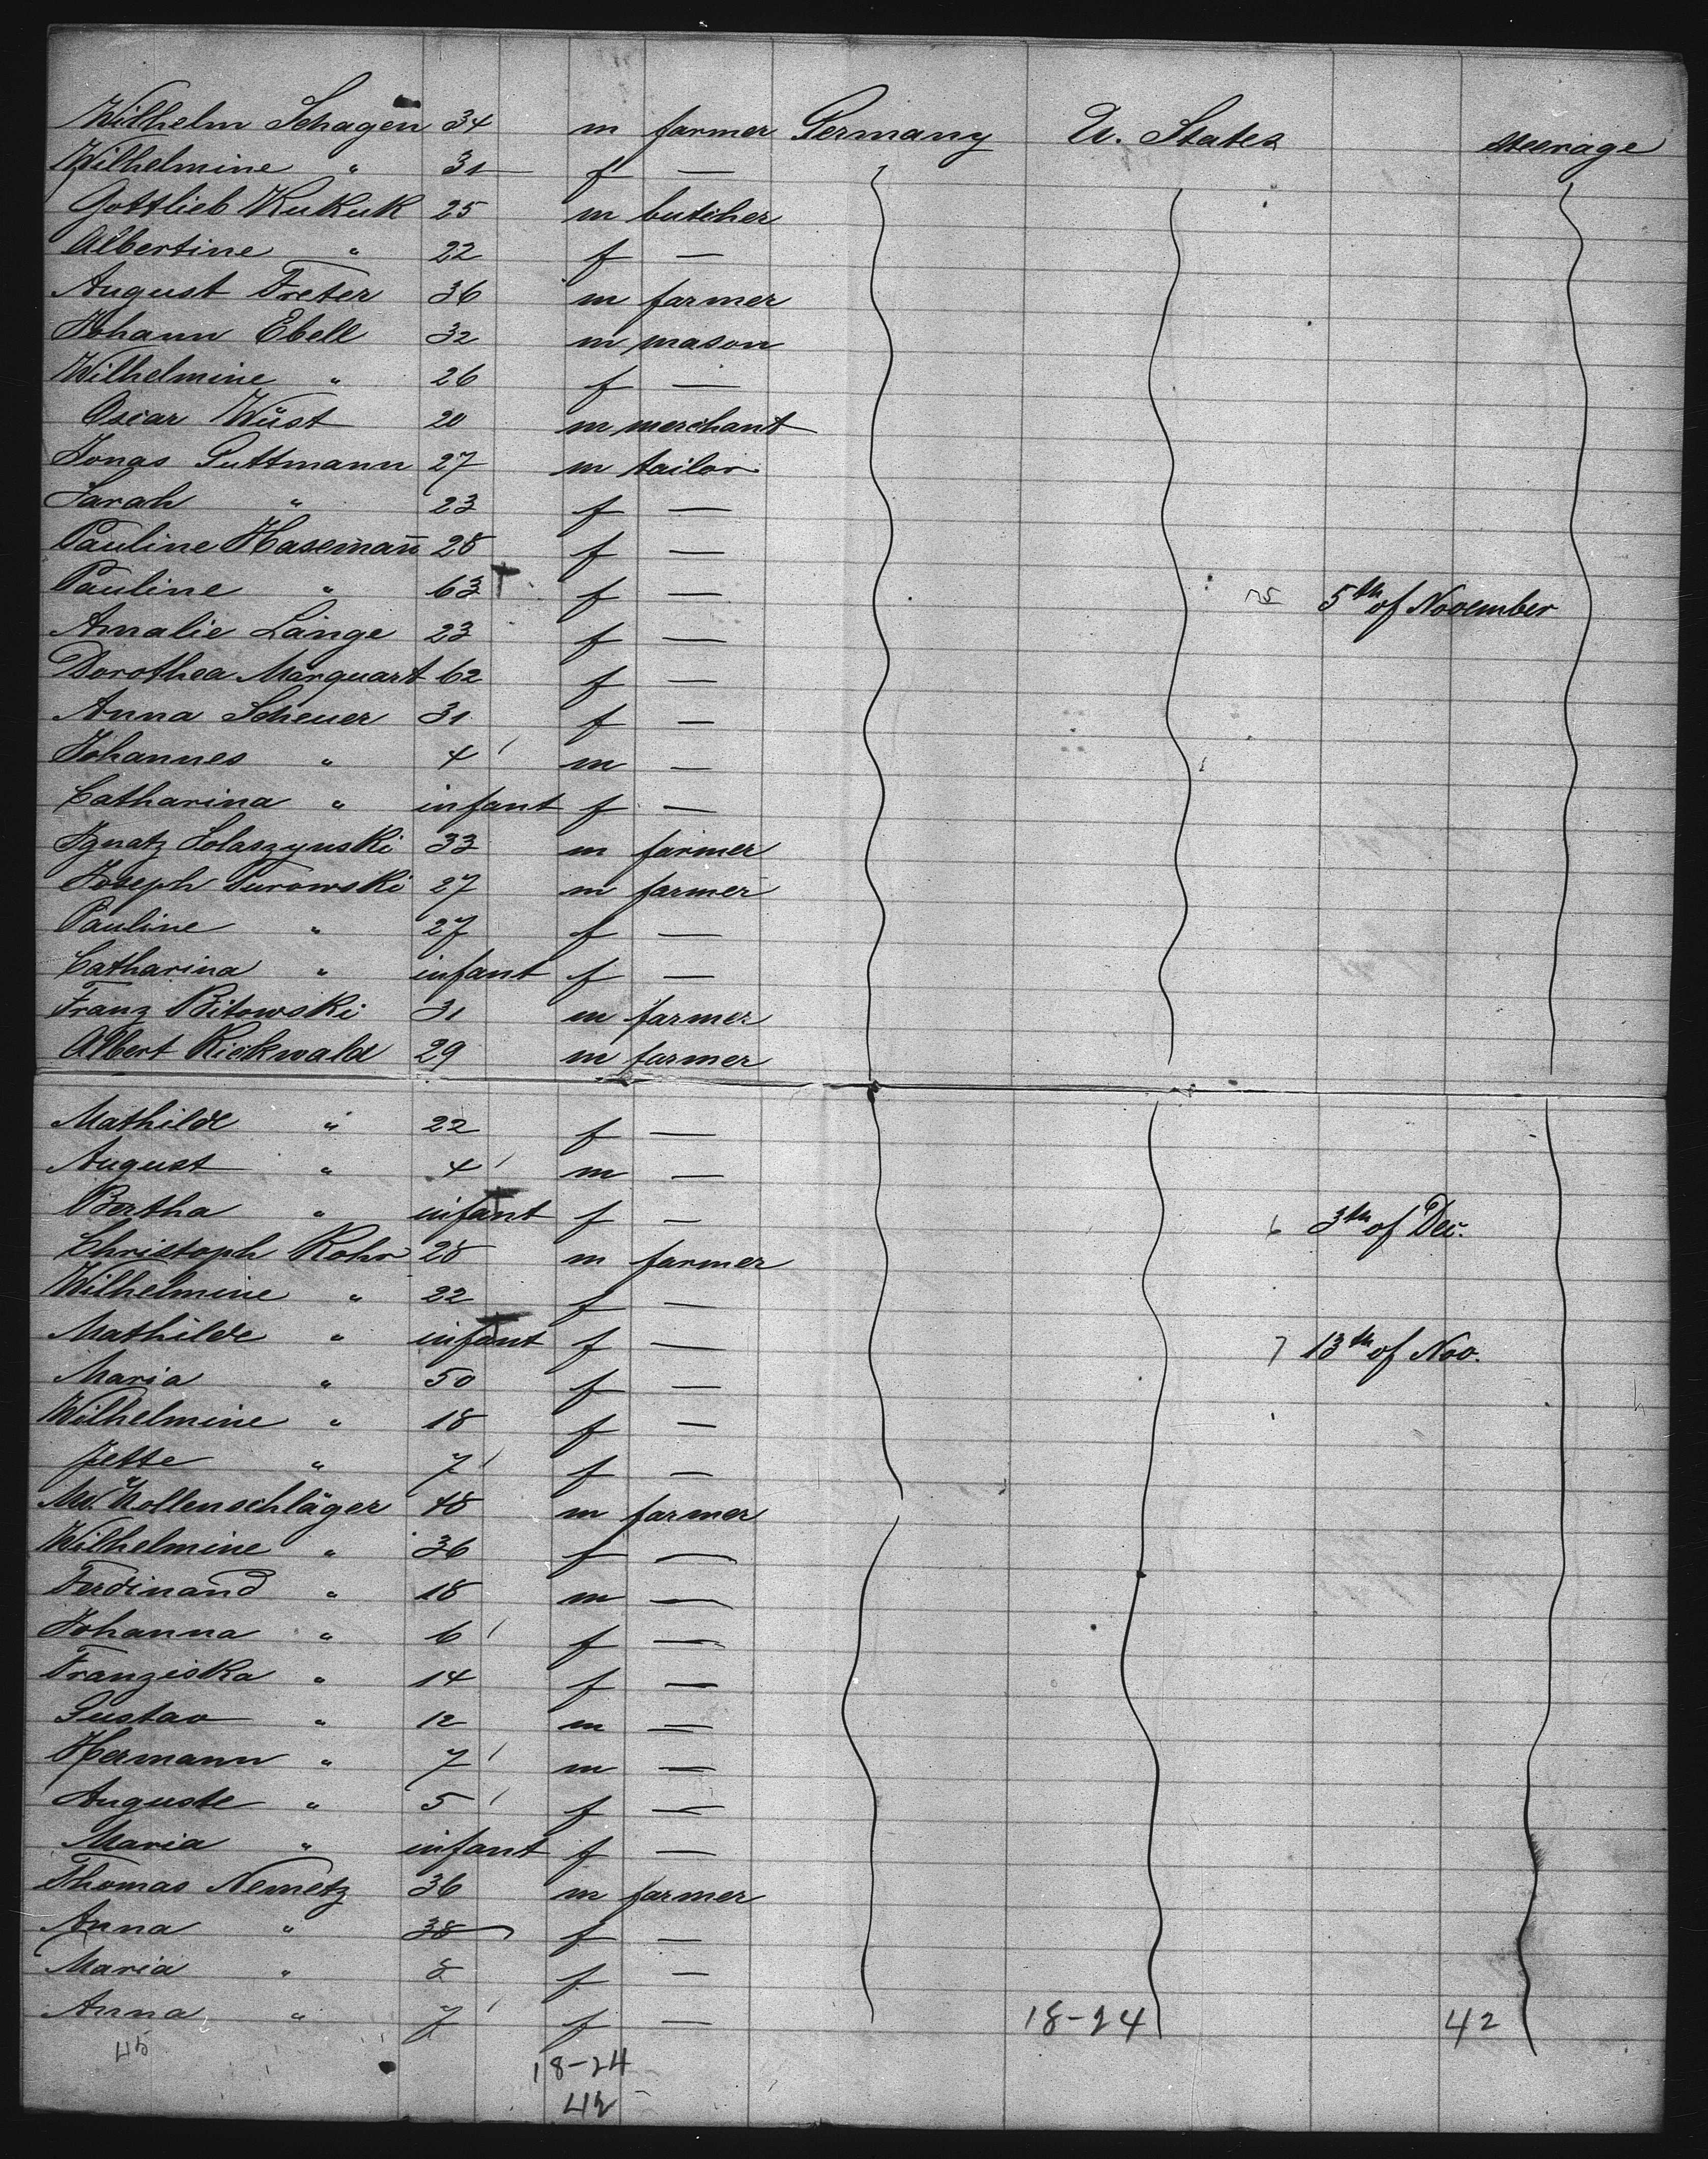 Wilhelm Schagen 34 m farmer Germany U. States steerage
Wilhelmine " 31 f —
Gottlieb Kukuk 25 m butcher
Albertine " 22 f —
August Treter 36 m farmer
Johann Ebell 32 m mason
Wilhelmine " 26 f —
Oscar Wüst 20 m merchant
Jonas Guttmann 27 m tailor
Sarah " 23 f —
Pauline Hasemañ 28 f —
Pauline " 63 f — 5th of November
Amalie Lange 23 f —
Dorothea Marquart 62 f —
Anna Scheuer 31 f —
Johannes " 4 m —
Catharina " infant f —
Ignatz Solaszynski 33 m farmer
Joseph Turowski 27 m farmer
Pauline " 27 f —
Catharina " infant f —
Franz Bitowski 31 m farmer
Albert Rickwald 29 m farmer
Mathilde " 22 f —
August " 4 m —
Bertha " infant f — 6 3th of Dec.
Christoph Rohr 28 m farmer
Wilhelmine " 22 f —
Mathilde " infant f — 7 13th of Nov.
Maria " 50 f —
Wilhelmine " 18 f —
Jette " 7 f —
Mr. Wollenschläger 48 m farmer
Wilhelmine " 36 f —
Ferdinand " 18 m —
Johanna " 6 f —
Franziska " 14 f —
Gustav " 12 m —
Hermann " 7 m —
Auguste " 5 f —
Maria " infant f —
Thomas Nemetz 36 m farmer
Anna " 38 f —
Maria " 8 f —
Anna " 7 f — 18-24 42
45 18-24
42